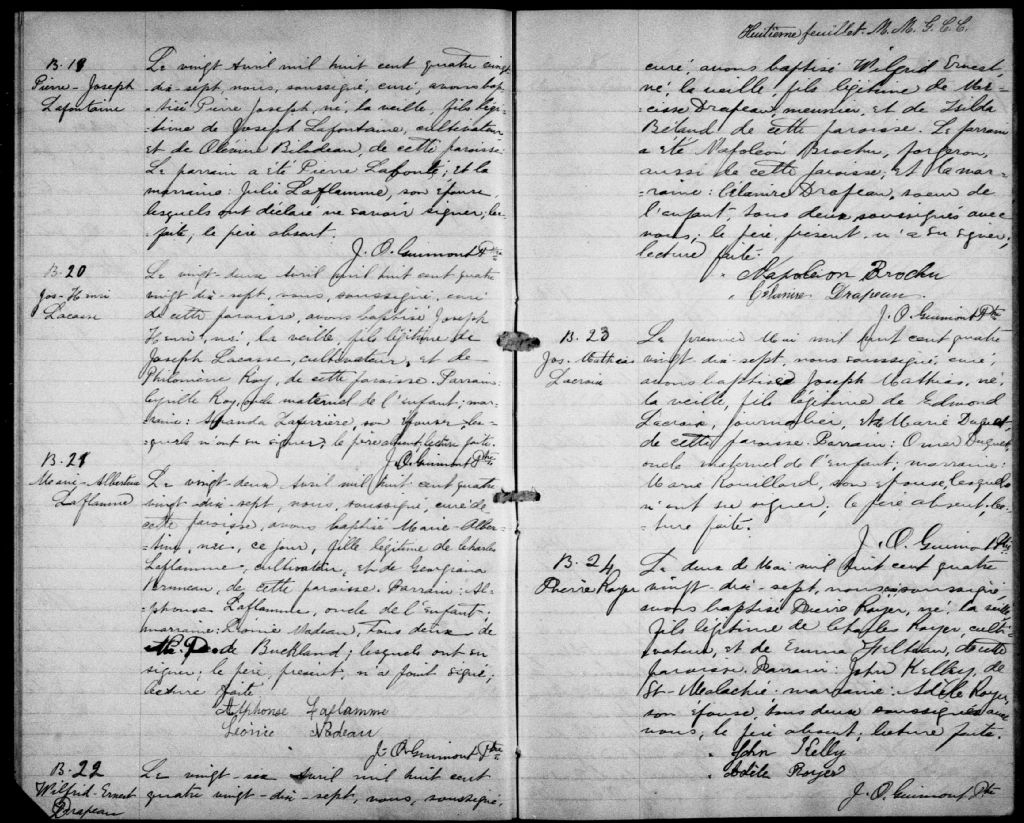 B-19
Pierre-Joseph
Lafontaine
Le vingt Avril mil huit cent quatre vingt
dix-sept, nous, soussigné, curé, avons bap-
tisé Pierre Joseph, né, la veille, fils légi-
time de Joseph Lafontaine, cultivateur
et de Bilodeau, de cette paroisse.
Le parrain a été Pierre; et la
marraine: Julie Laflamme, son épouse,
lesquels ont déclaré ne savoir signer; lec-
ture faite, le père absent.
J. O. Guimont Ptre
B-20
Jos-Henri
Lacasse
Le vingt-deux Avril mil huit cent quatre
vingt dix-sept, nous, soussigné, curé
de cette paroisse, avons baptisé Joseph
Henri, né, la veille, fils légitime de
Joseph Lacasse, cultivateur, et de
Philomène Roy, de cette paroisse. Parrain:
Cyrille Roy, oncle maternel de l'enfant; mar-
raine: Laferrière, son épouse, les-
quels n'ont su signer; le père absent, lecture faite.
J. O. Guimont Ptre
B-21
Marie-Albertine
Laflamme
Le vingt-deux Avril mil huit cent quatre
vingt-dix-sept, nous, soussigné, curé de
cette paroisse, avons baptisé Marie-Alber-
tine, née, ce jour, fille légitime de Charles
Laflamme, cultivateur, et de Georgiana
de cette paroisse. Parrain: Al-
phonse Laflamme, oncle de l'Enfant;
marraine: Léonie Nadeau, tous deux de
de Buckland; lesquels ont su
signer; le père présent, n'a point signé;
lecture faite
Alphonse Laflamme
Léonie Nadeau
J. O. Guimont Ptre
B-22
Wilfrid-Ernest
Drapeau
Le vingt-six Avril mil huit cent
quatre vingt-dix-sept, nous, soussigné,
Huitième feuillet. M. M. G. C. C.
curé, avons baptisé Wilfrid Ernest,
né, la veille, fils légitime de Nar-
cisse Drapeau, meunier, et de Exilda
Béland, de cette paroisse. Le parrain
a été Napoléon Brochu, forgeron,
aussi de cette paroisse; et la mar-
raine: Célanire Drapeau, soeur de
l'enfant, tous deux, soussignés avec
nous; le père présent n'a su signer;
lecture faite.
Napoléon Brochu
Célanire Drapeau
J. O. Guimont Ptre
B-23
Jos. Mathias
Lacroix
Le premier Mai mil huit cent quatre
vingt dix sept, nous soussigné, curé,
avons baptisé Joseph Mathias, né,
la veille, fils légitime de Edmond
Lacroix, journalier, & Marie Duquet,
de cette paroisse. Parrain: Omer Duquet,
oncle maternel de l'enfant; marraine:
Marie Rouillard, son épouse, lesquels
n'ont su signer; le père absent, lec-
ture faite.
J. O. Guimont Ptre
B-24
Pierre Royer
Le deux de Mai mil huit cent quatre
vingt-dix-sept, nous, soussigné,
avons baptisé Pierre Royer, né, la veille
fils légitime de Charles Royer, culti-
vateur, et de Emma, de cette
paroisse. Parrain: John Kelly, de
St-Malachie marraine: Adèle Royer,
son épouse, tous deux soussignés avec
nous, le père absent; lecture faite.
John Kelly
Adèle Royer
J. O. Guimont Ptre